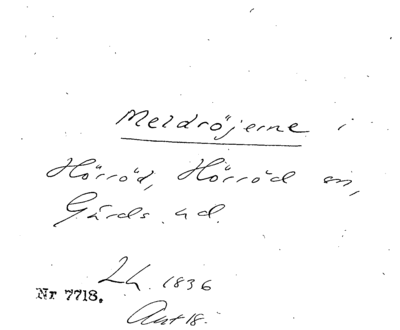 Meldröjerne i
Hörröd, Hörröd sn,
Gärds hd.
Lh. 1836
Nr 7718.
Aut 18.